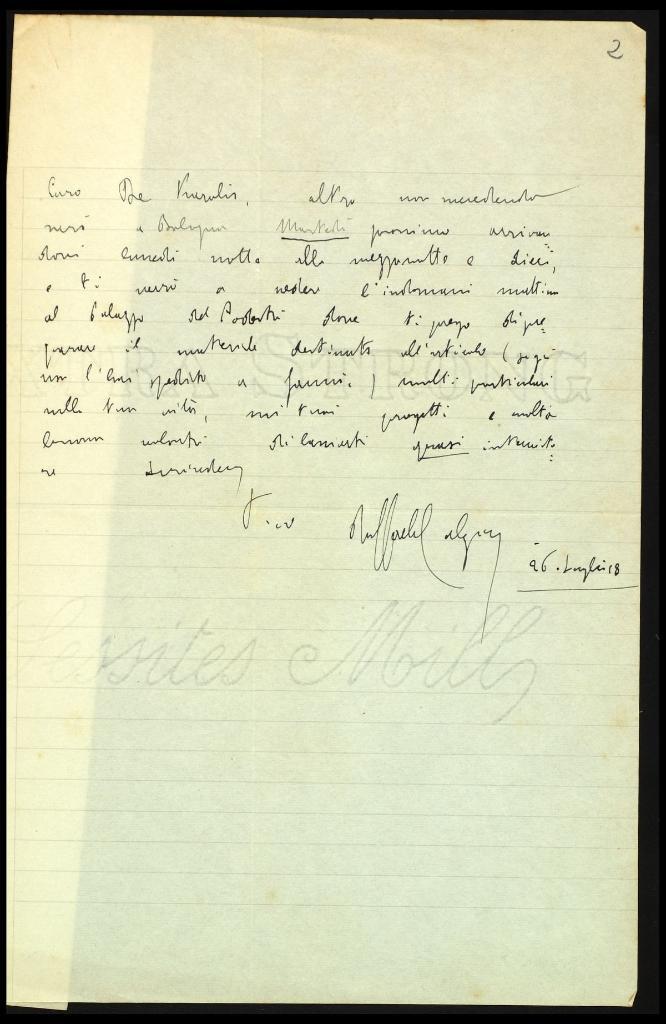 2
Caro De Karolis, altro non accadendo
verrò a Bologna Martedì prossimo arrivan
dovi lunedì notte alla mezzanotte e dieci,
e ti verrò a vedere l'indomani mattina
al Palazzo del Podestà dove ti prego di pre=
parare il materiale destinato all'articolo (se già
non l'hai spedito a ) molti particolari
sulla tua vita, sui tuoi progetti e molta
buona volontà di lasciarti quasi intervista=
re
Tuo Raffaele Calzini
26. Luglio 18
STRONG
Mill